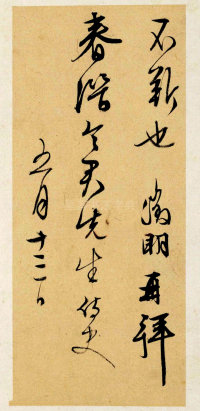 不斬也 徵明再拜
春潛令君先生侍史
五月十二日